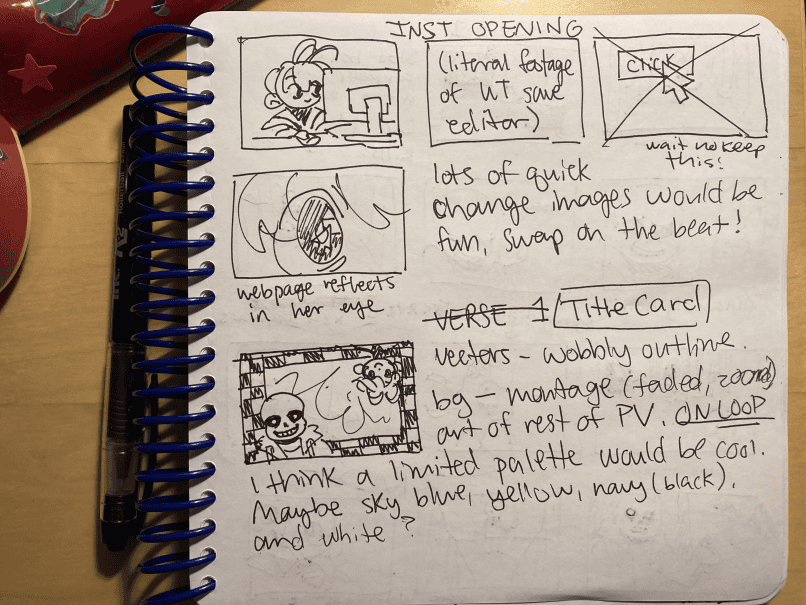 INST OPENING
(literal footage
of UT save
editor)
click
wait no keep
this!
lots of quick
change images would be
fun, swap on the beat!
webpage reflects
in her eye
VERSE 1
Title Card
vectors - wobbly outline.
bg - montage (faded, zoomed)
art of rest of PV. ON LOOP
I think a limited palette would be cool.
Maybe sky blue, yellow, navy (black).
and white?